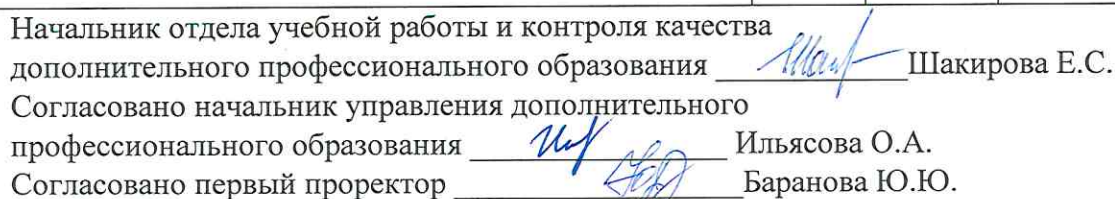 Начальник отдела учебной работы и контроля качества
дополнительного профессионального образования Шакирова Е.С.
Согласовано начальник управления дополнительного
профессионального образования Ильясова О.А.
Согласовано первый проректор Баранова Ю.Ю.